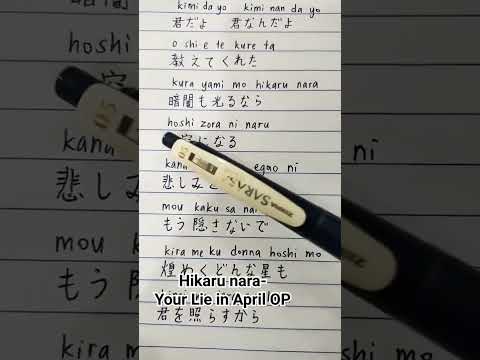 kimi da yo kimi nan da yo
君だよ 君なんだよ
o shi e te kure ta
教えてくれた
kura yami mo hikaru nara
暗闇も光るなら
hoshi zora ni naru
になる
egao ni
悲しみ
SARASA
ZEBRA
0.5
mou kaku sa na
もう隠さないで
kira me ku donna hoshi mo
煌めくどんな星も
Hikaru nara-
Your Lie in April OP
君を照らすから